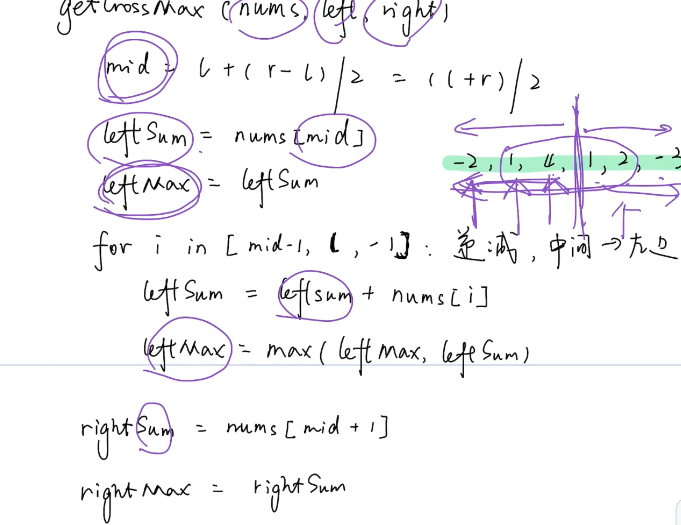 getCrossMax (nums, left, right)
mid = l + ( r - l ) / 2 = ( l + r ) / 2
leftSum = nums [mid]
leftMax = leftSum
-2, 1, 4, 1, 2, -3
for i in [ mid-1, l, -1] : 递减, 中间 →左边
leftSum = leftsum + nums [i]
leftMax = max ( leftMax, leftSum)
rightSum = nums [ mid + 1 ]
rightMax = rightSum